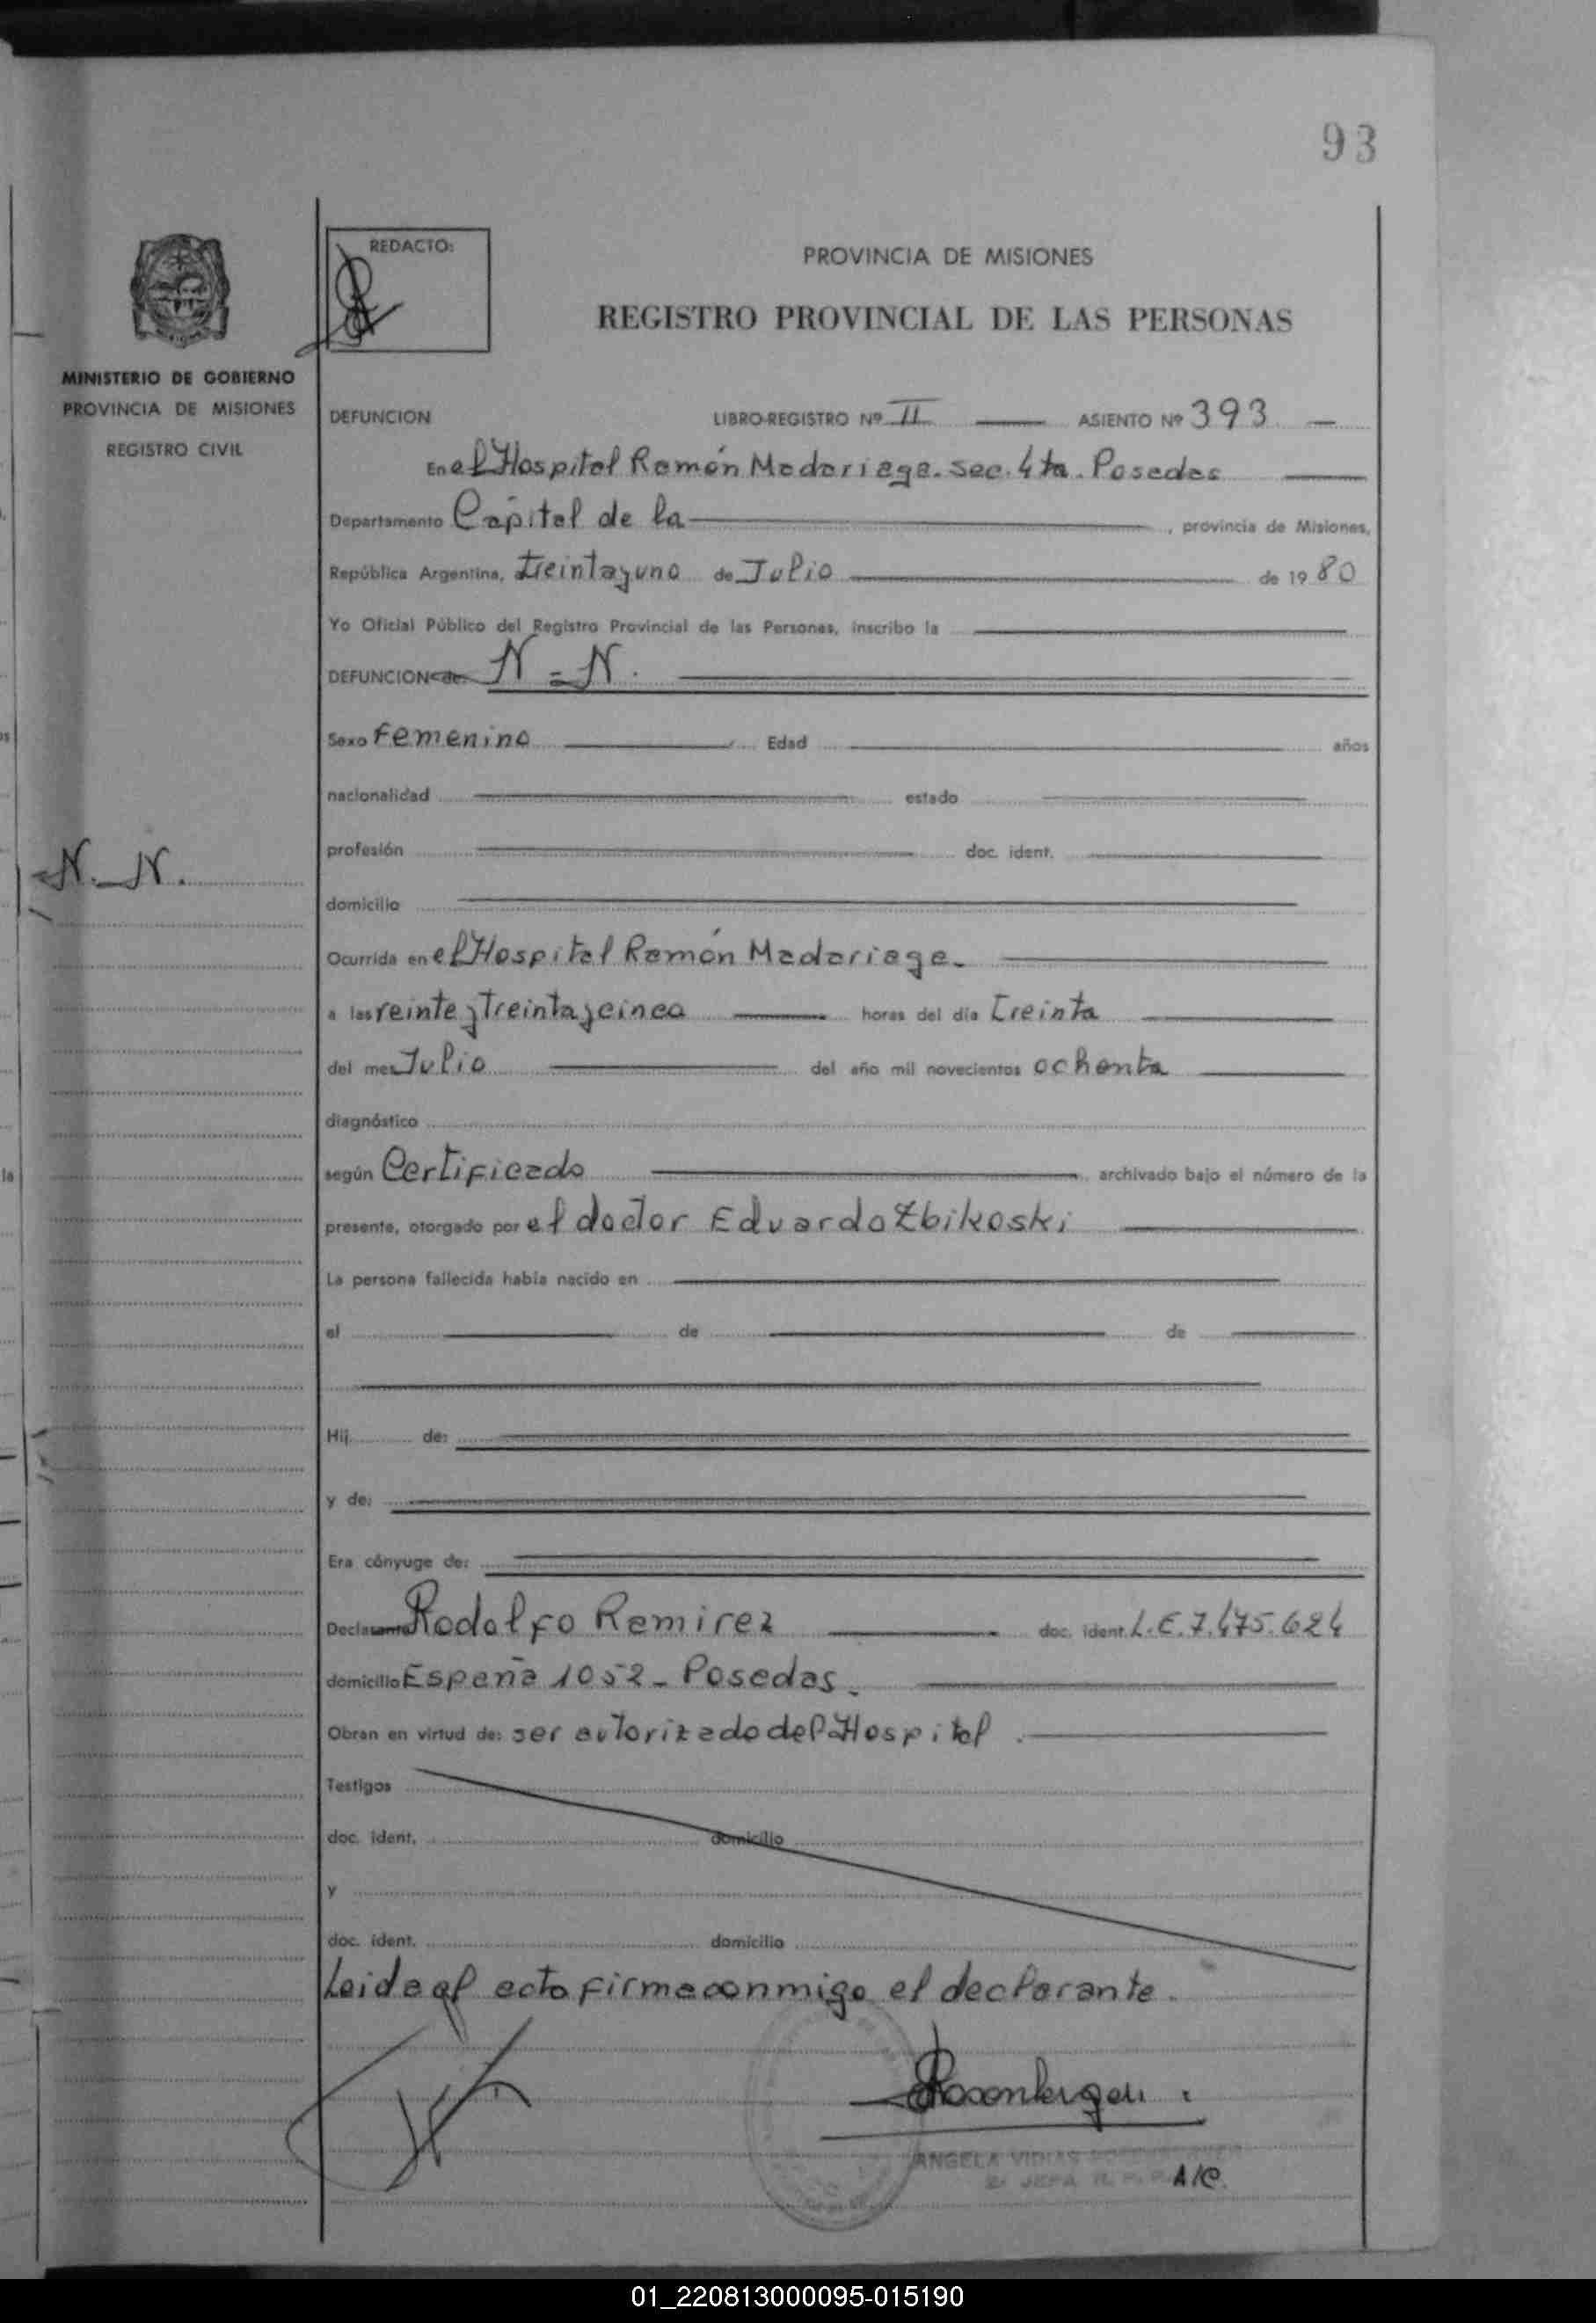 93
REDACTO:
PROVINCIA DE MISIONES
REGISTRO PROVINCIAL DE LAS PERSONAS
MINISTERIO DE GOBIERNO
PROVINCIA DE MISIONES
REGISTRO CIVIL
DEFUNCION LIBRO-REGISTRO Nº II ASIENTO Nº 393
En el Hospital Ramón Madariaga. sec. 4ta. Posadas
Departamento Capital de la , provincia de Misiones,
República Argentina, treintayuno de Julio de 1980
Yo Oficial Público del Registro Provincial de las Personas, inscribo la
DEFUNCION de: N = N.
Sexo Femenino Edad años
nacionalidad estado
profesión doc. ident.
N. N.
domicilio
Ocurrida en el Hospital Ramón Madariaga.
a las veinte y treinta y cinco horas del día treinta
del mes Julio del año mil novecientos ochenta
diagnóstico
según Certificado archivado bajo el número de la
presente, otorgado por el doctor Eduardo Zbikoski
La persona fallecida había nacido en
el de de
Hij de:
y de:
Era cónyuge de:
Declarante Rodolfo Ramirez doc. ident. L.E. 7.475.624
domicilio España 1052 - Posadas.
Obran en virtud de: ser autorizado del Hospital.
Testigos
doc. ident. domicilio
y
doc. ident. domicilio
Leida el acta firma conmigo el declarante.
ANGELA
JEFA A/C.
01_220813000095-015190